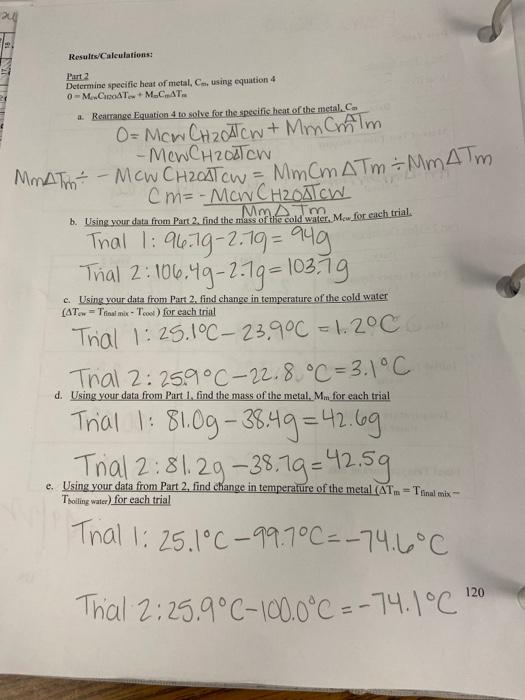 Results/Calculations:
Part 2
Determine specific heat of metal, Cm, using equation 4
0 = McwCH2OΔTcw + MmCmΔTm
a. Rearrange Equation 4 to solve for the specific heat of the metal, Cm
0= Mcw CH2OΔTcw + MmCmΔTm
- McwCH2OΔTcw
MmΔTm÷ - Mcw CH2OΔTcw = MmCmΔTm ÷ MmΔTm
Cm= - Mcw CH2OΔTcw
MmΔTm
b. Using your data from Part 2, find the mass of the cold water, Mcw for each trial.
Trial 1: 96.7g-2.7g= 94g
Trial 2: 106.4g-2.7g= 103.7g
c. Using your data from Part 2, find change in temperature of the cold water
(ΔTcw = Tfinal mix - Tcool) for each trial
Trial 1: 25.1°C - 23.9°C = 1.2°C
Trial 2: 25.9°C - 22.8 °C = 3.1°C
d. Using your data from Part 1, find the mass of the metal, Mm for each trial
Trial 1: 81.0g - 38.4g = 42.6g
Trial 2: 81.2g - 38.7g = 42.5g
e. Using your data from Part 2, find change in temperature of the metal (ΔTm = Tfinal mix –
Tboiling water) for each trial
Trial 1: 25.1°C - 99.7°C = -74.6°C
Trial 2: 25.9°C - 100.0°C = -74.1°C
120